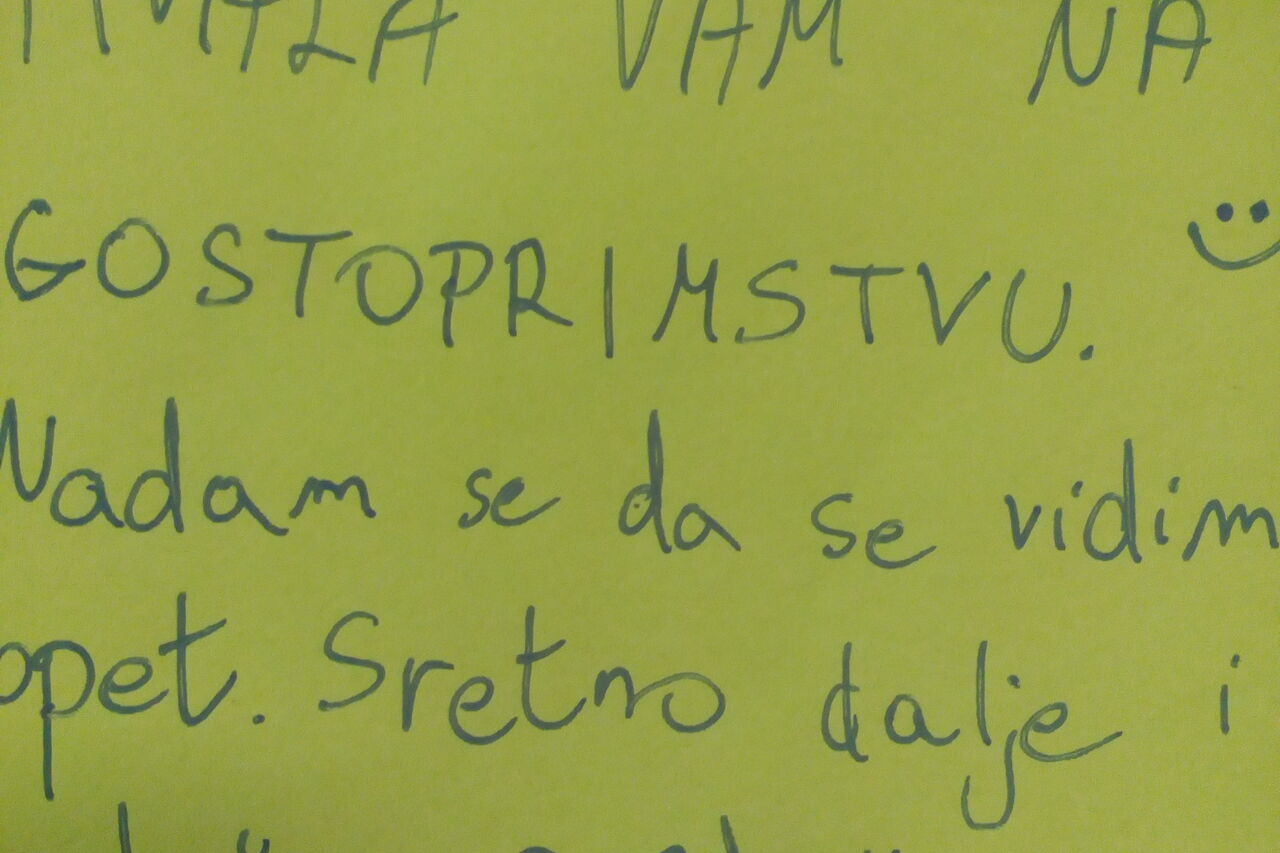 HVALA VAM NA
GOSTOPRIMSTVU.
Nadam se da se vidim
opet. Sretno dalje i